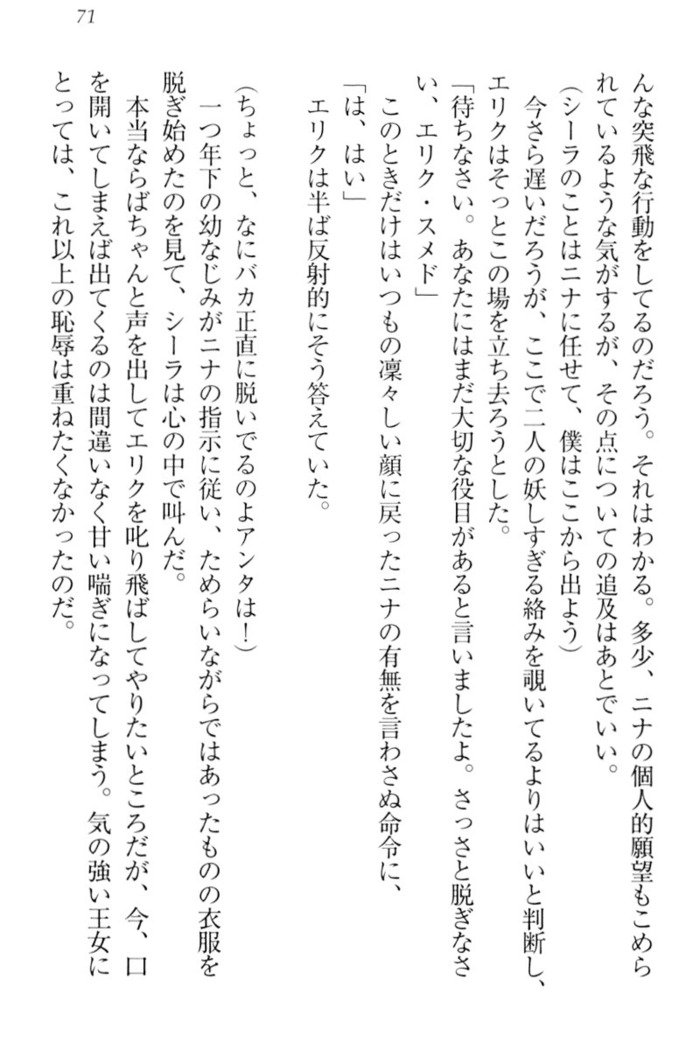 71
んな突飛な行動をしてるのだろう。それはわかる。多少、ニナの個人的願望もこめら
れているような気がするが、その点についての追及はあとでいい。
(シーラのことはニナに任せて、僕はここから出よう)
今さら遅いだろうが、ここで二人の妖しすぎる絡みを覗いてるよりはいいと判断し、
エリクはそっとこの場を立ち去ろうとした。
「待ちなさい。あなたにはまだ大切な役目があると言いましたよ。さっさと脱ぎなさ
い、エリク・スメド」
このときだけはいつもの凛々しい顔に戻ったニナの有無を言わさぬ命令に、
「は、はい」
エリクは半ば反射的にそう答えていた。
(ちょっと、なにバカ正直に脱いでるのよアンタは！)
一つ年下の幼なじみがニナの指示に従い、ためらいながらではあったものの衣服を
脱ぎ始めたのを見て、シーラは心の中で叫んだ。
本当ならばちゃんと声を出してエリクを叱り飛ばしてやりたいところだが、今、口
を開いてしまえば出てくるのは間違いなく甘い喘ぎになってしまう。気の強い王女に
とっては、これ以上の恥辱は重ねたくなかったのだ。